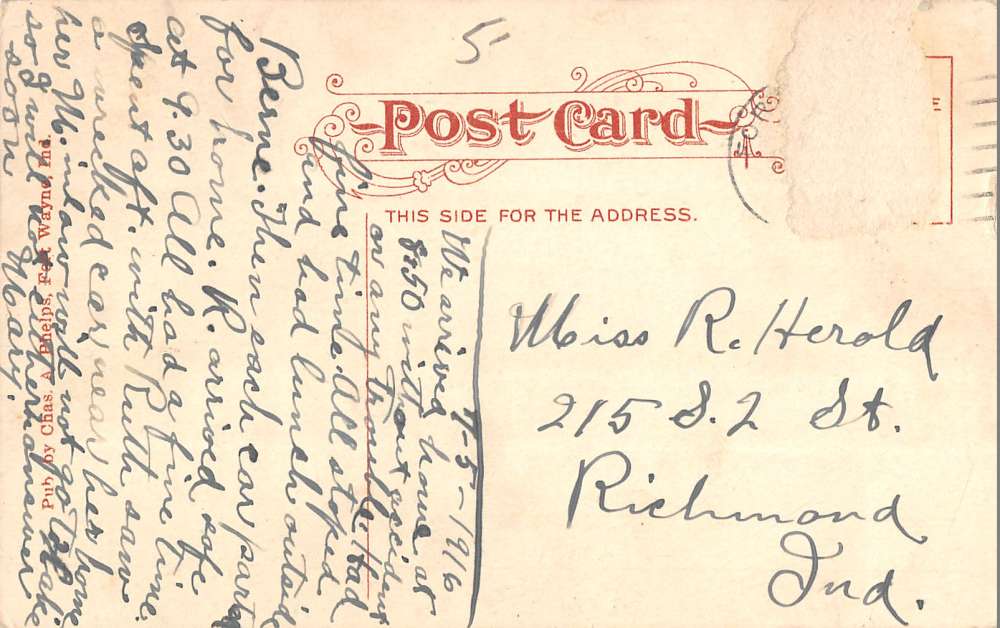 5
Post Card
THIS SIDE FOR THE ADDRESS.
E
Miss R. Herold
215 S. 2 St.
Richmond
Ind.
7-5-1916
We arrived home at
8:50 without accident
or any trouble. Had
fine time. All stoped
and had lunch outside
Berne. Then each car parted
for home. R. arived safe
at 9.30 All had a fine time.
Spent aft. with Ruth saw
a wrecked car near her home
her M. inlaw will not go to
so I will not either answer
soon Mary.
Pub. by Chas. A. Phelps, Fort Wayne, Ind.